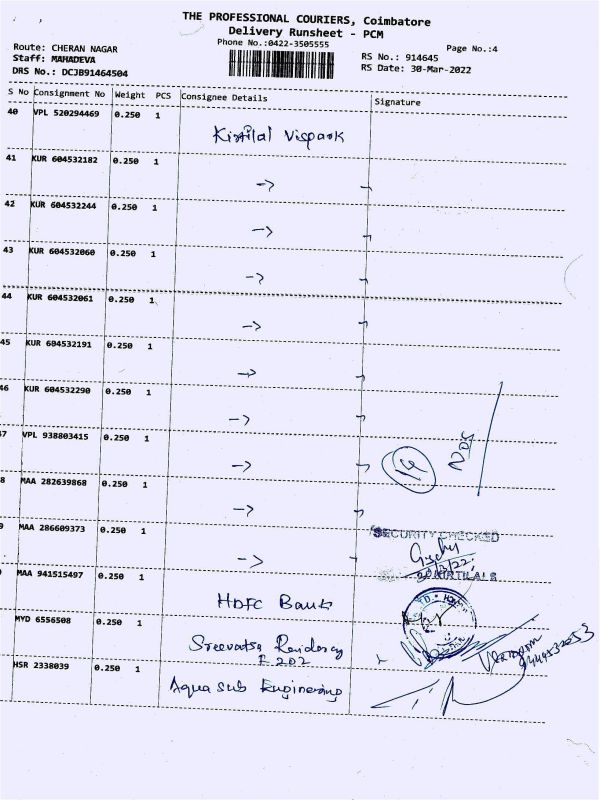 THE PROFESSIONAL COURIERS, Coimbatore
Delivery Runsheet - PCM
Phone No.:0422-3505555
Page No.:4
Route: CHERAN NAGAR
Staff: MAHADEVA
DRS No.: DCJB91464504
RS No.: 914645
RS Date: 30-Mar-2022
S No Consignment No Weight PCS Consignee Details Signature
40 VPL 520294469 0.250 1
41 KUR 604532182 0.250 1
42 KUR 604532244 0.250 1
43 KUR 604532060 0.250 1
44 KUR 604532061 0.250 1
45 KUR 604532191 0.250 1
46 KUR 604532290 0.250 1
7 VPL 938803415 0.250 1
14 Nos
8 MAA 282639868 0.250 1
9 MAA 286609373 0.250 1
SECURITY CHECKED
MAA 941515497 0.250 1 HDFC Bank
MYD 6556508 0.250 1 Sreevatsa Residency
F 202
HSR 2338039 0.250 1 Aqua sub Enginering